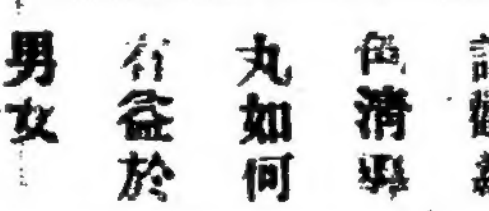 色清導
丸如何
有益於
男女